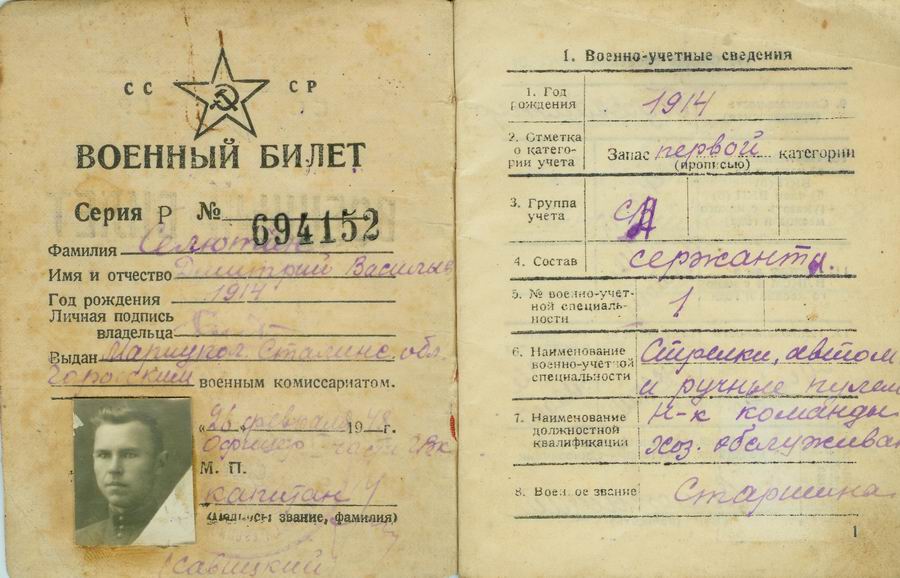 СС СР
ВОЕННЫЙ БИЛЕТ
Серия Р № 694152
Фамилия Селютин
Имя и отчество Дмитрий Васильев
Год рождения 1914
Личная подпись
владельца
Выдан Мариупол. Сталинс. обл.
Городским военным комиссариатом.
„26 февраля 1948 г.
части
М. П.
капитан
(подпись, звание, фамилия)
(Савицкий
1. Военно-учетные сведения
1. Год
рождения
1914
2. Отметка
о катего-
рии учета
Запас первой категории
(прописью)
3. Группа
учета
СА
4. Состав сержанты.
5. № военно-учет-
ной специаль-
ности
1
6. Наименование
военно-учетной
специальности
Стрелки, автом
и ручные пулем
7. Наименование
должностной
квалификации
Н-к команды
хоз. обслужива
8. Военное звание Старшина
1